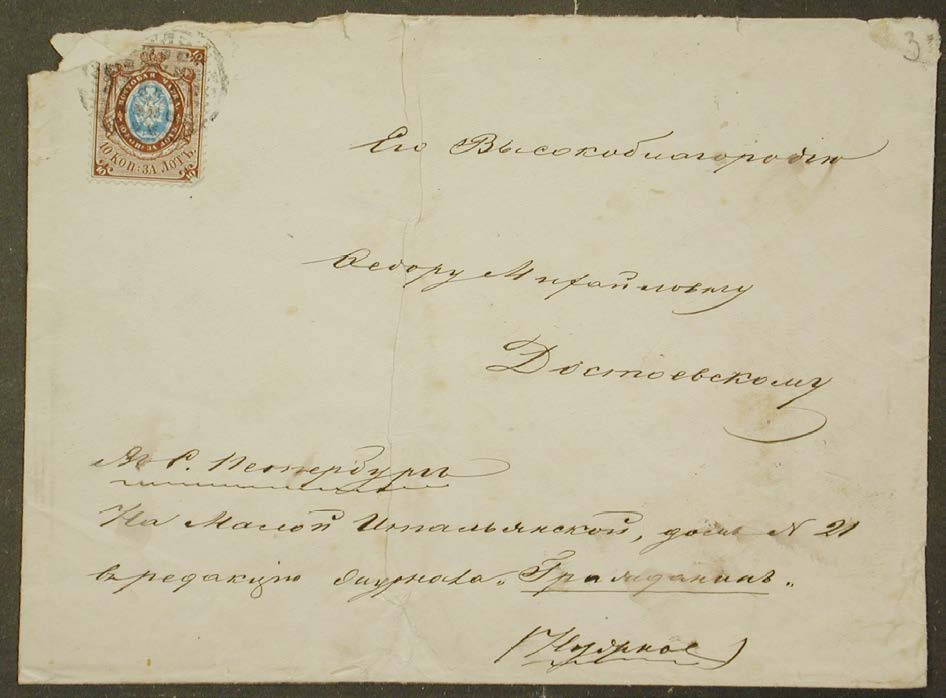 3
ПОЧТОВАЯ МАРКА
10 КОП: ЗА ЛОТЪ.
Его Высокоблагородію
Ѳедору Михайловичу
Достоевскому
Въ С. Петербургъ
На Малой Итальянской, домъ N 21
въ редакцію журнала „Гражданинъ".
(Нужное)